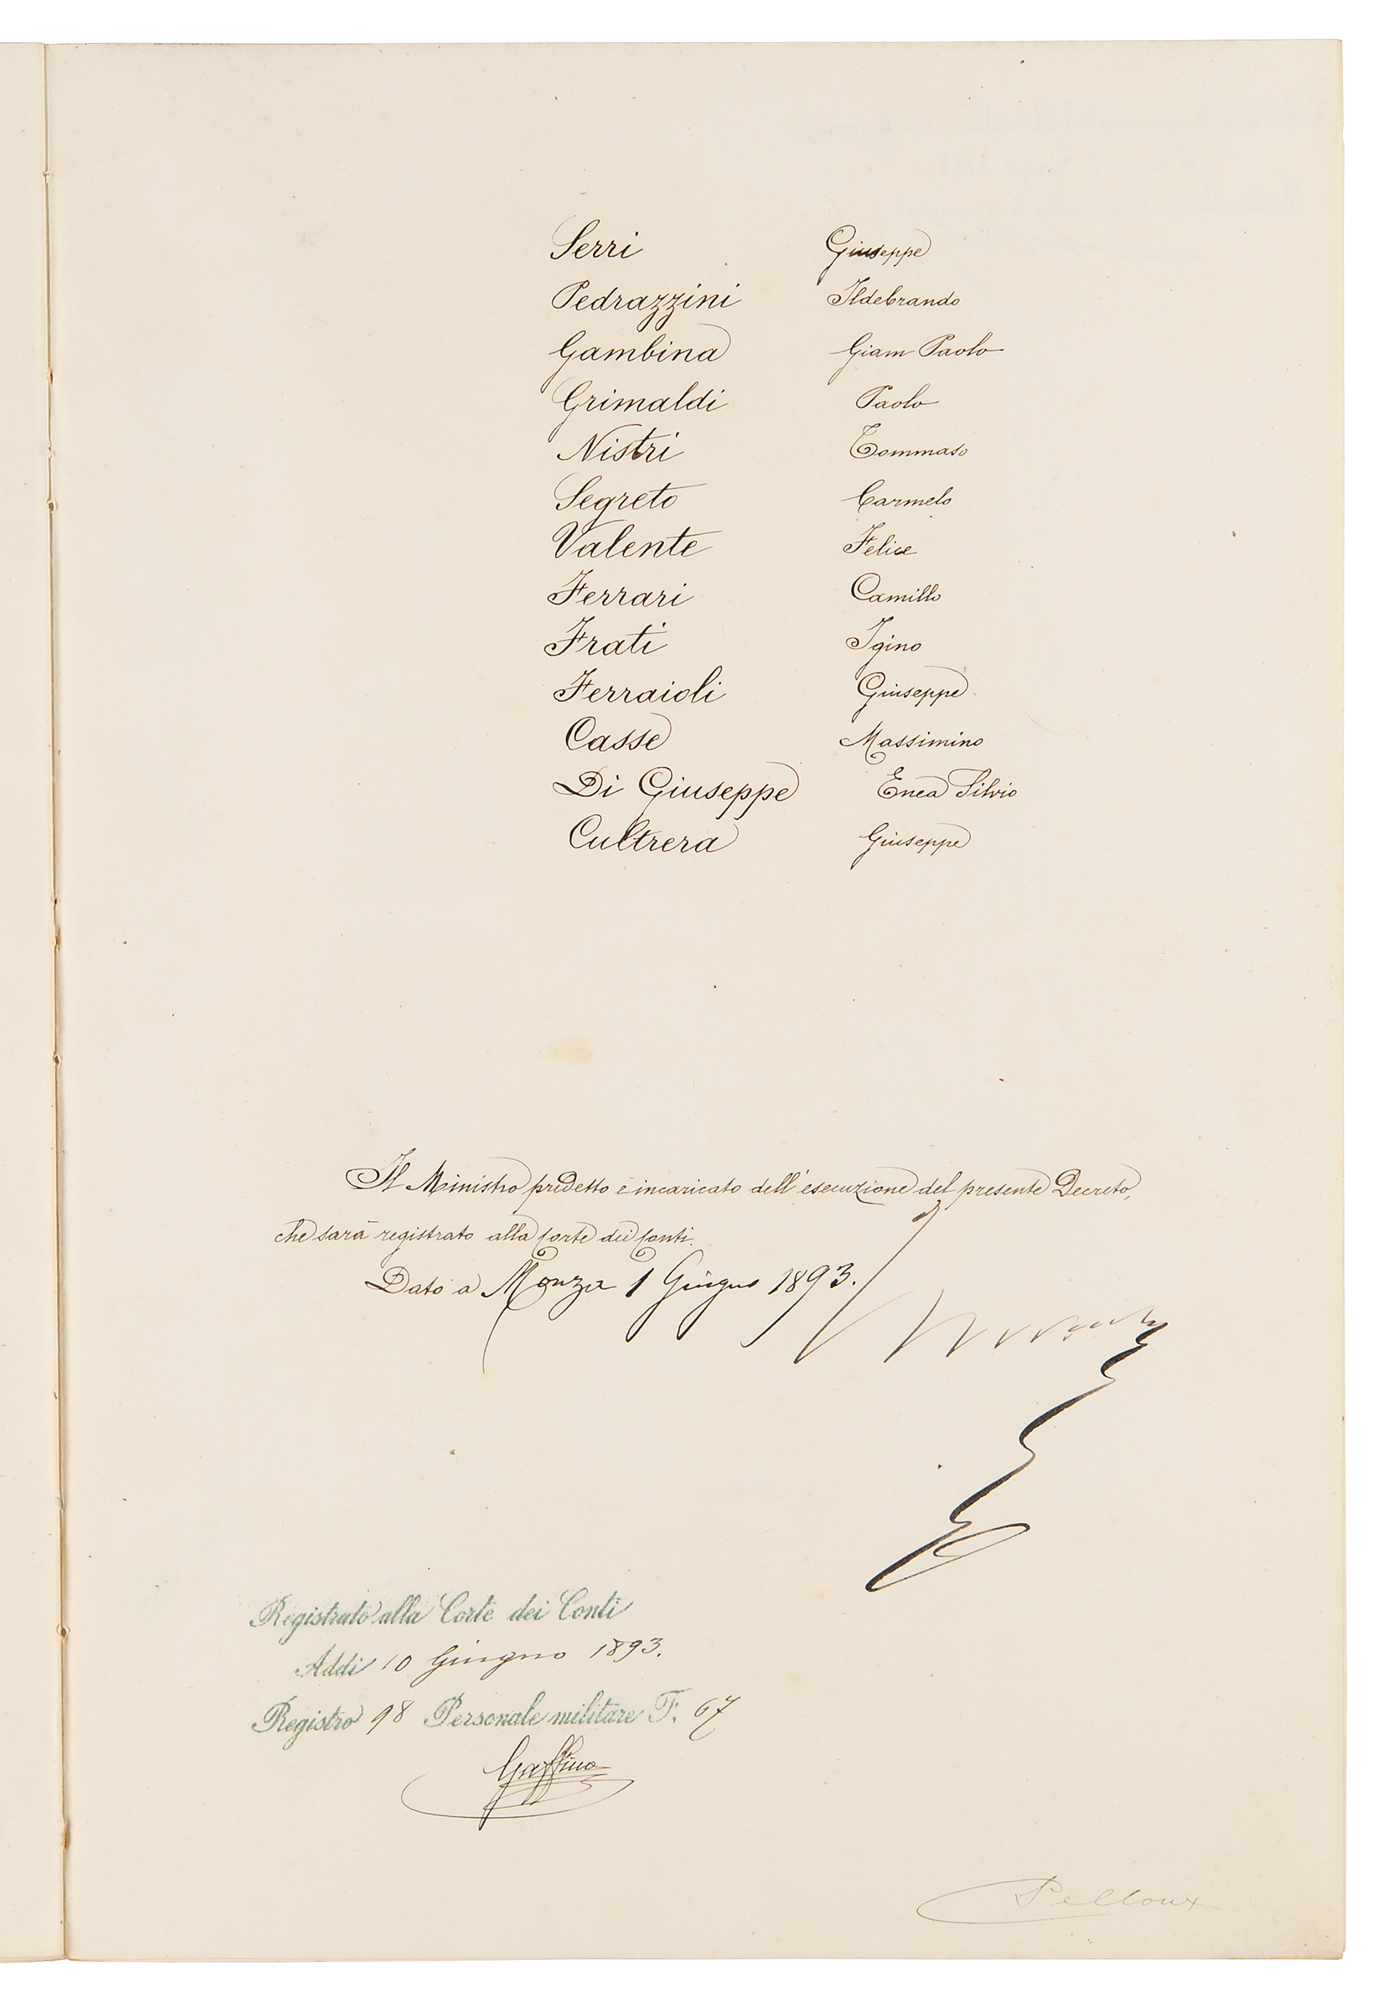 Serri Giuseppe
Pedrazzini Ildebrando
Gambina Giam Paolo
Grimaldi Paolo
Nistri Tommaso
Segreto Carmelo
Valente Felice
Ferrari Camillo
Frati Igino
Ferraioli Giuseppe
Casse Massimino
Di Giuseppe Enea Silvio
Cultrera Giuseppe
Il Ministro predetto è incaricato dell'esecuzione del presente Decreto,
che sarà registrato alla Corte dei Conti.
Dato a Monza 1 Giugno 1893.
Registrato alla Corte dei Conti
Addi 10 Giugno 1893.
Registro 98 Personale militare F. 67
Pelloux